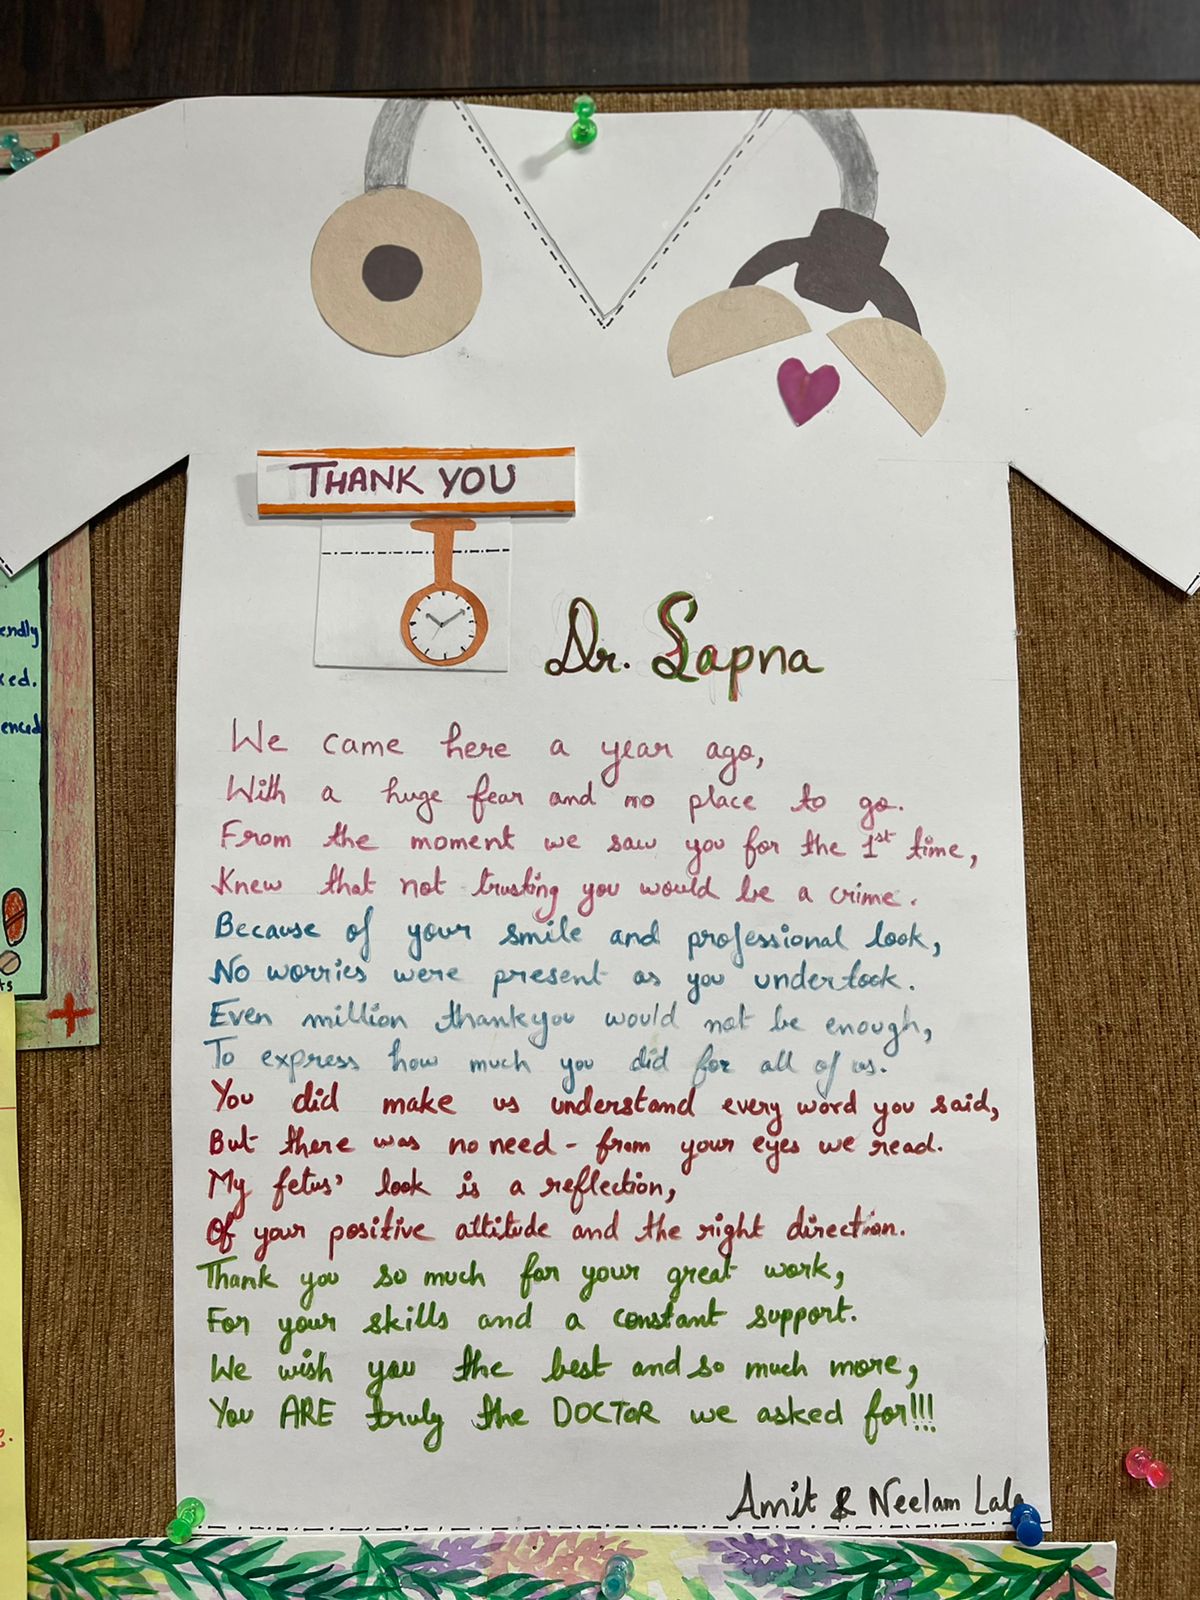 THANK YOU
Dr. Sapna
We came here a year ago,
With a huge fear and no place to go.
From the moment we saw you for the 1st time,
Knew that not trusting you would be a crime.
Because of your smile and professional look,
No worries were present as you undertook.
Even million thankyou would not be enough,
To express how much you did for all of us.
You did make us understand every word you said,
But there was no need - from your eyes we read.
My fetus' look is a reflection,
Of your positive attitude and the right direction.
Thank you so much for your great work,
For your skills and a constant support.
We wish you the best and so much more,
You ARE truly the DOCTOR we asked for!!!
Amit & Neelam